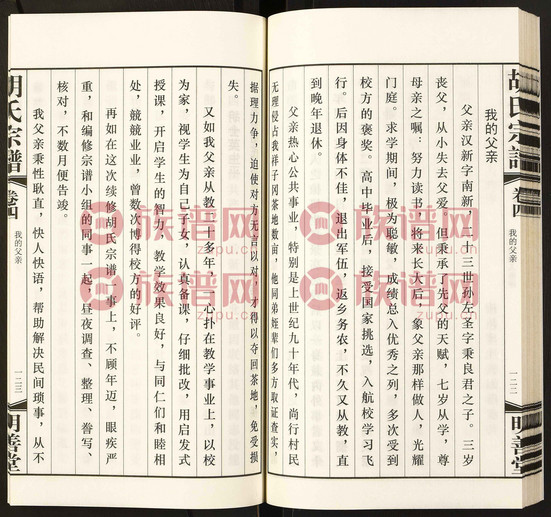 胡氏宗譜
卷四
我的父亲
一二二
明善堂
我的父亲
父亲汉新字南新，二十三世孙左圣字秉良君之子。三岁
丧父，从小失去父爱。但秉承了先父的天赋，七岁从学，尊
母亲之嘱：努力读书，将来长大后，象父亲那样做人，光耀
门庭。求学期间，极为聪敏，成绩总入优秀之列，多次受到
校方的褒奖。高中毕业后，接受国家挑选，入航校学习飞
行。后因身体不佳，退出军伍，返乡务农，不久又从教，直
到晚年退休。
父亲热心公共事业，特别是上世纪九十年代，尚行村民
无理侵占我祥子冈茶地数亩，他同弟姪辈们多方取证查实，
据理力争，迫使对方无言以对，才得以夺回茶地，免受损
失。
又如我父亲从教二十多年，一心扑在教学事业上，以校
为家，视学生为自己子女，认真备课，仔细批改，用启发式
授课，开启学生的智力，教学效果良好，与同仁们和睦相
处，兢兢业业，曾数次博得校方的好评。
再如在这次续修胡氏宗谱一事上，不顾年迈，眼疾严
重，和编修宗谱小组的同事一起，昼夜调查、整理、誊写、
核对，不数月便告竣。
我父亲秉性耿直，快人快语，帮助解决民间琐事，从不
胡氏宗譜
卷四
我的父亲
一二三
明善堂
族谱网
zupu.cn
族谱网
zupu.cn
族谱网
zupu.cn
族谱网
zupu.cn